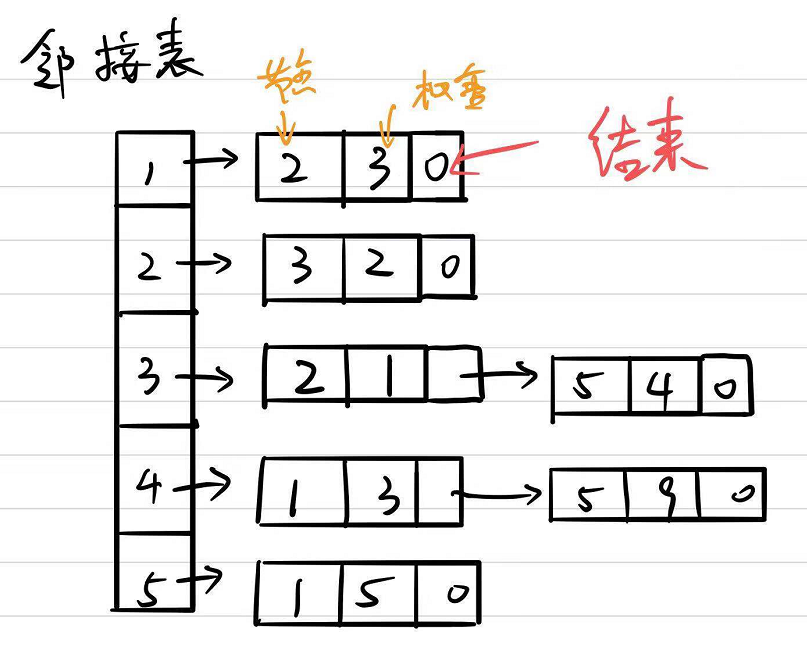 邻接表
节点 权重
结束
1 2 3 0
2 3 2 0
3 2 1 5 4 0
4 1 3 5 9 0
5 1 5 0